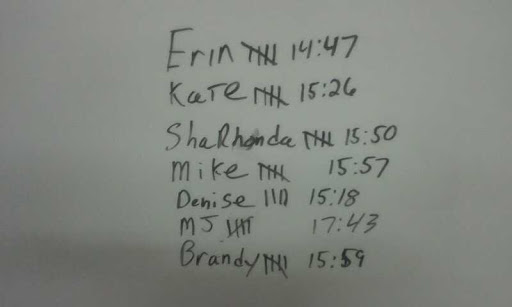 Erin 14:47
Kate 15:26
ShaRhonda 15:50
Mike 15:57
Denise 15:18
MJ 17:43
Brandy 15:59